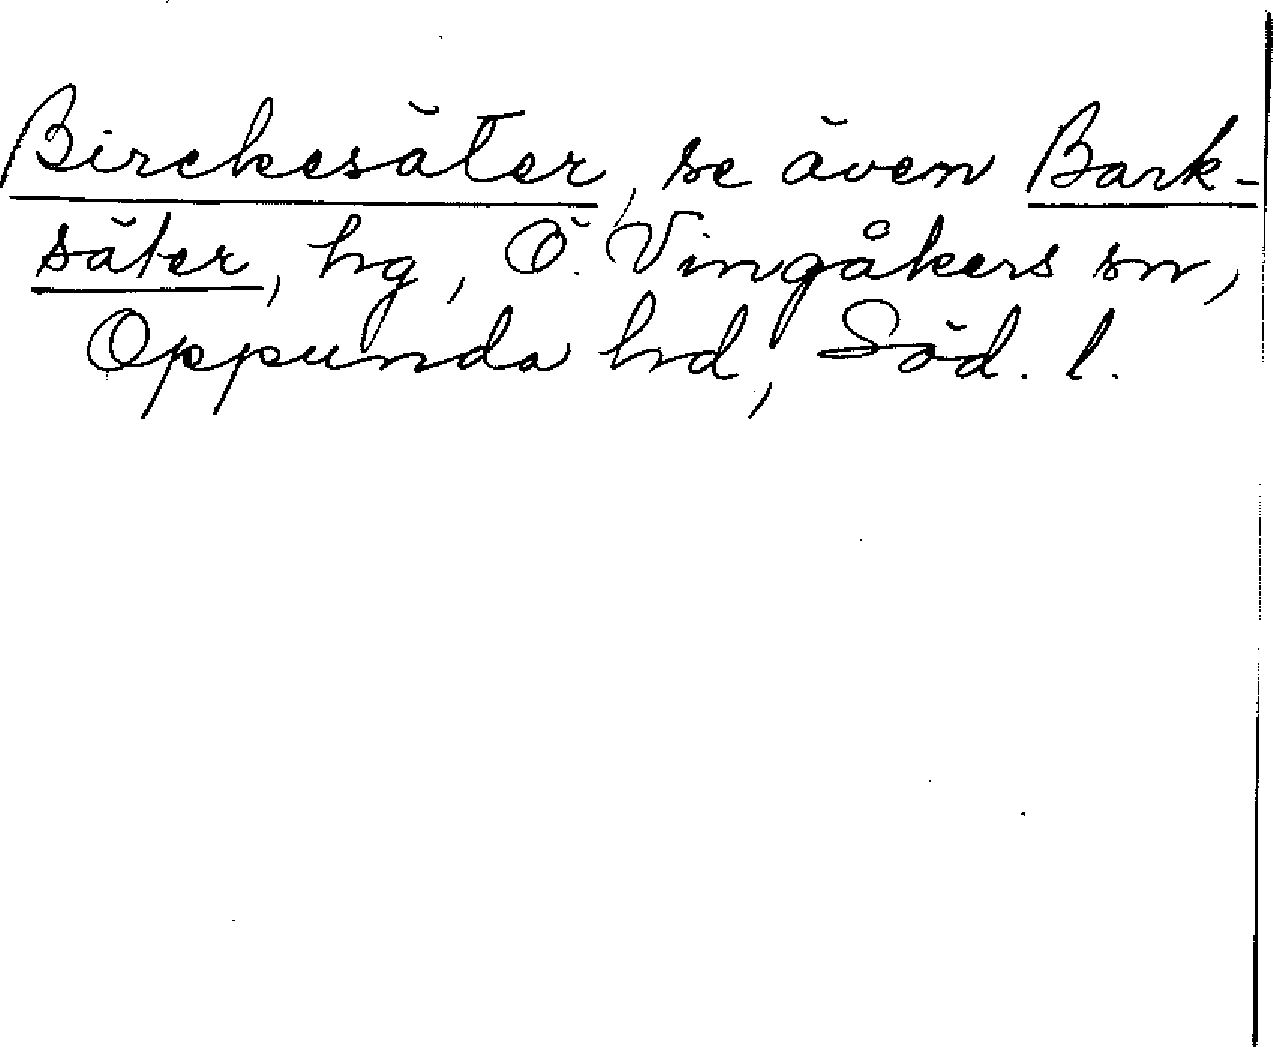 Birckesäter, se även Bark-
säter, hg, Ö. Vingåkers sn,
Oppunda hd, Söd. l.